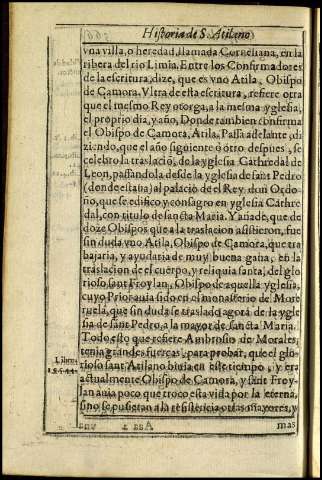 Historia de S. Atilano
vna villa, o heredad, llamada Corneliana, en la
ribera del rio Limia. Entre los Confirmadores
de la escritura, dize, que es vno Atila, Obispo
de Çamora. Vltra de esta escritura, refiere otra
que el mesmo Rey otorga, a la mesma yglesia,
el proprio dia, y año, Donde tambien confirma
el Obispo de Çamora, Atila. Passa adelante, di
ziendo, que el año siguiente ò otro despues, se
celebro la traslaciõ, de la yglesia Cathredal de
Leon, passandola desde la yglesia de sant Pedro
(donde estaua) al palacio de el Rey, don Ordo
ño, que se edifico, y consagro en yglesia Cathre
dal, con titulo de sancta Maria. Y añade, que de
doze Obispos que a la traslacion assistieron, fue
sin duda vno Atila, Obispo de Çamora, que tra
bajaria, y ayudaria de muy buena gana, en la
traslacion de el cuerpo, y reliquia santa, del glo
rioso sant Froylan, Obispo de aquella yglesia,
cuyo Prior auia sido en el monasterio de More
ruela, que sin duda se traslado agora de la ygle
sia de sant Pedro, a la mayor de sancta Maria.
Todo esto que refiere Ambrosio de Morales,
tenia grandes fuerças, para probar, que el glo
rioso sant Atilano biuia en este tiempo, y era
actualmente Obispo de Çamora, y sant Froy-
lan auia poco que troco esta vida por la eterna,
sino se pusieran a la resistencia otras mayores, y
mas